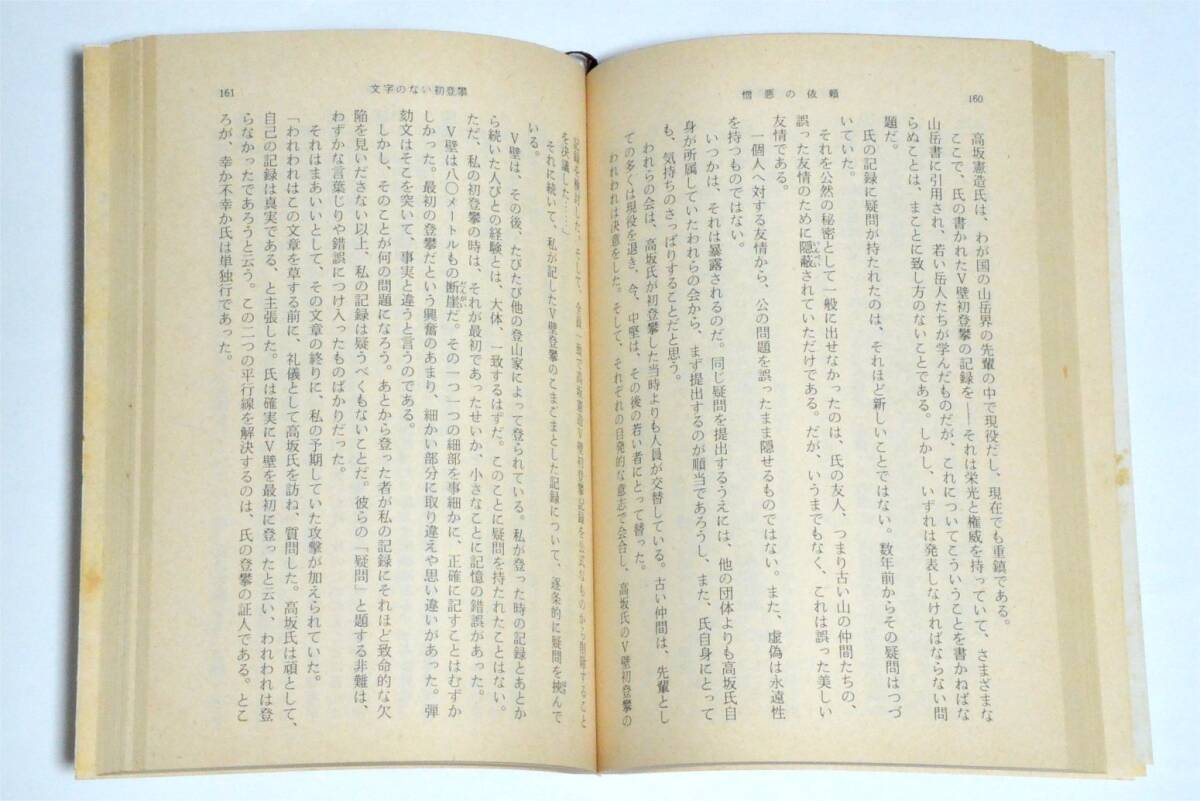 160
憎悪の依頼
高坂憲造氏は、わが国の山岳界の先輩の中で現役だし、現在でも重鎮である。
ここで、氏の書かれたV壁初登攀の記録を――それは栄光と権威を持っていて、さまざまな
山岳書に引用され、若い岳人たちが学んだものだが、これについてこういうことを書かねばな
らぬことは、まことに致し方のないことである。しかし、いずれは発表しなければならない問
題だ。
氏の記録に疑問が持たれたのは、それほど新しいことではない。数年前からその疑問はつづ
いていた。
それを公然の秘密として一般に出せなかったのは、氏の友人、つまり古い山の仲間たちの、
誤った友情のために隠蔽されていただけである。だが、いうまでもなく、これは誤った美しい
友情である。
一個人へ対する友情から、公の問題を誤ったまま隠せるものではない。また、虚偽は永遠性
を持つものではない。
いつかは、それは暴露されるのだ。同じ疑問を提出するうえには、他の団体よりも高坂氏自
身が所属していたわれらの会から、まず提出するのが順当であろうし、また、氏自身にとって
も、気持ちのさっぱりすることだと思う。
われらの会は、高坂氏が初登攀した当時よりも人員が交替している。古い仲間は、先輩とし
ての多くは現役を退き、今、中堅は、その後の若い者にとって替った。
われわれは決意をした。そして、それぞれの自発的な意志で会合し、高坂氏のV壁初登攀の
161
文字のない初登攀
記録を検討した。そして、全員一致で高坂憲造V壁初登攀記録を公式なものから削除すること
を決議した……」
それに続いて、私が記したV壁登攀のこまごまとした記録について、逐条的に疑問を挾んで
いる。
V壁は、その後、たびたび他の登山家によって登られている。私が登った時の記録とあとか
ら続いた人びとの経験とは、大体、一致するはずだ。このことに疑問を持たれたことはない。
ただ、私の初登攀の時は、それが最初であったせいか、小さなことに記憶の錯誤があった。
V壁は八〇メートルもの断崖だ。その一つ一つの細部を事細かに、正確に記すことはむずか
しかった。最初の登攀だという興奮のあまり、細かい部分に取り違えや思い違いがあった。弾
劾文はそこを突いて、事実と違うと言うのである。
しかし、そのことが何の問題になろう。あとから登った者が私の記録にそれほど致命的な欠
陥を見いださない以上、私の記録は疑うべくもないことだ。彼らの「疑問」と題する非難は、
わずかな言葉じりや錯誤につけ入ったものばかりだった。
それはまあいいとして、その文章の終りに、私の予期していた攻撃が加えられていた。
「われわれはこの文章を草する前に、礼儀として高坂氏を訪ね、質問した。高坂氏は頑として、
自己の記録は真実である、と主張した。氏は確実にV壁を最初に登ったと云い、われわれは登
らなかったであろうと云う。この二つの平行線を解決するのは、氏の登攀の証人である。とこ
ろが、幸か不幸か氏は単独行であった。